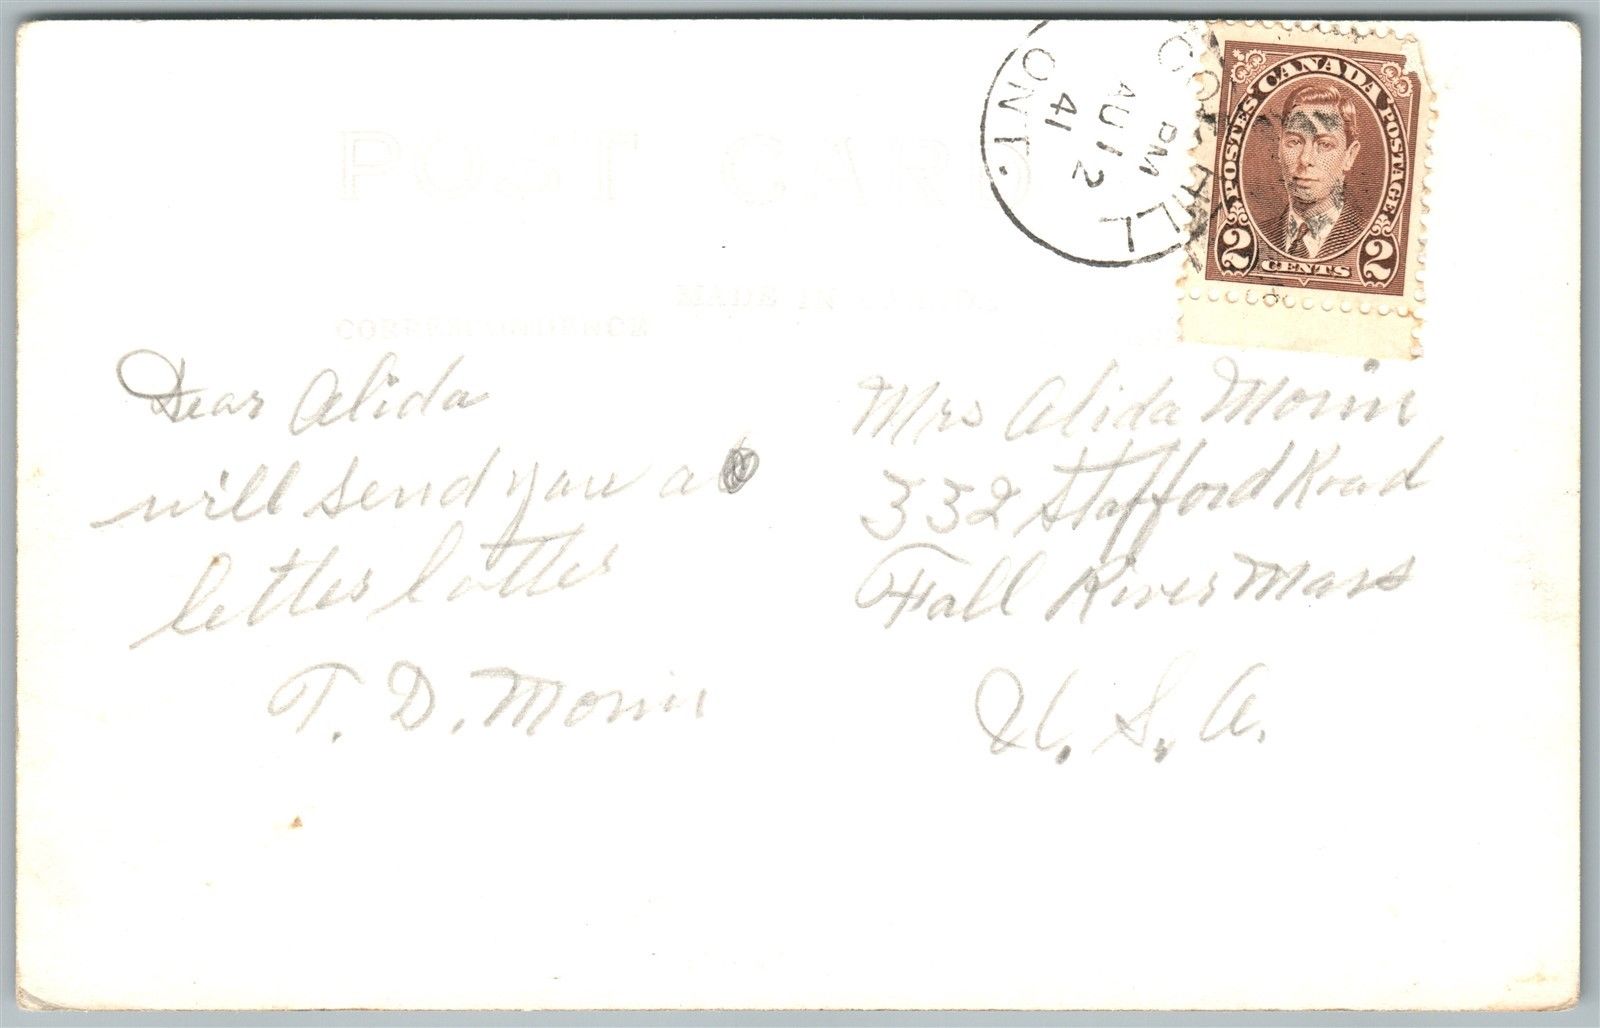 POST CARD
OOL HILL
PM
AU 12
41
ONT.
CANADA
POSTES POSTAGE
2 CENTS 2
MADE IN CANADA
CORRESPONDENCE
Dear Alida
will send you a
letter latter
T. D. Morin
Mrs Alida Morin
332 Stafford Road
Fall River Mass
U. S. A.